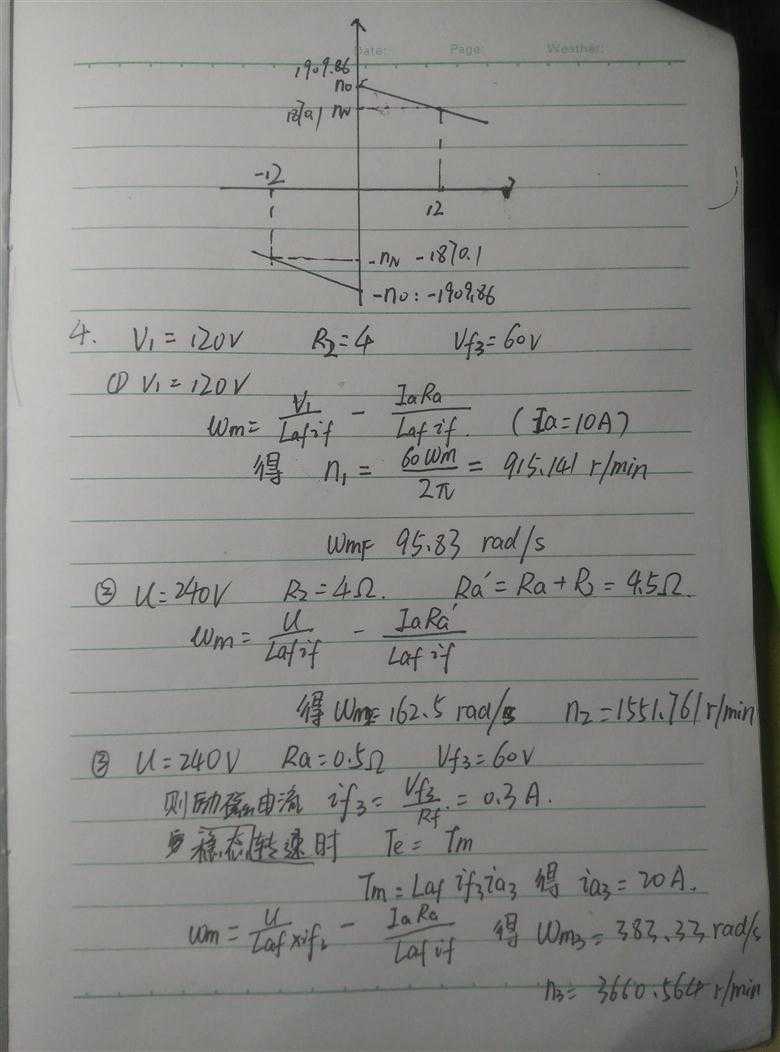 Date: Page: Weather:
1909.86
n₀
1870.1 n_N
-12
12
-n_N -1870.1
-n₀: -1909.86
4. V₁=120V R₂=4 V_f3=60V
① V₁=120V
ωm= V₁/(Laf if) - IaRa/(Laf if). (Ia=10A)
得 n₁= 60ωm/2π = 915.141 r/min
ωm= 95.83 rad/s
② U=240V R₂=4Ω. Ra'=Ra+R₂=4.5Ω.
ωm= U/(Laf if) - IaRa'/(Laf if)
得 ωm=162.5 rad/s n₂=1551.761 r/min
③ U=240V Ra=0.5Ω V_f3=60V
则励磁电流 if₃= V_f3/Rf = 0.3A.
稳态转速时 Te=Tm
Tm=Laf if₃ ia₃ 得 ia₃=20A.
ωm= U/(Laf×if₂) - IaRa/(Laf if) 得 ωm₃=383.33 rad/s
n₃= 3660.564 r/min